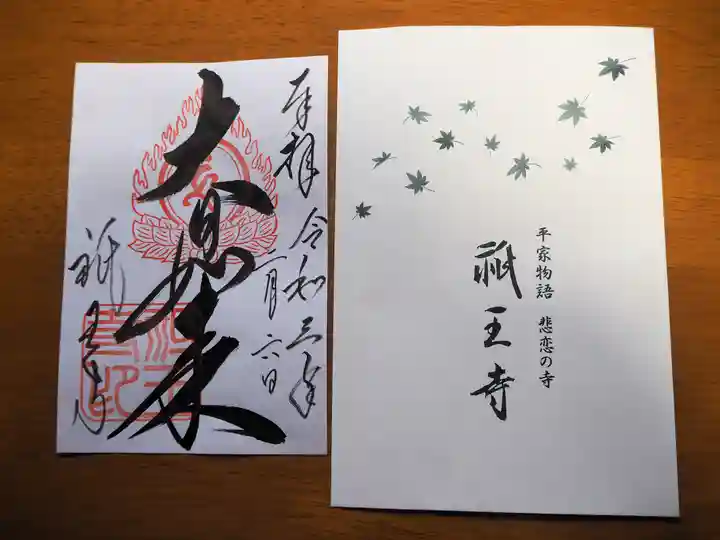 奉拝 令和三年
二月六日
大日如来
祇王寺
平家物語 悲恋の寺
祇王寺